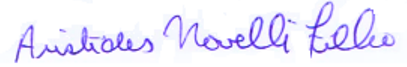 Aristides Novelli Filho